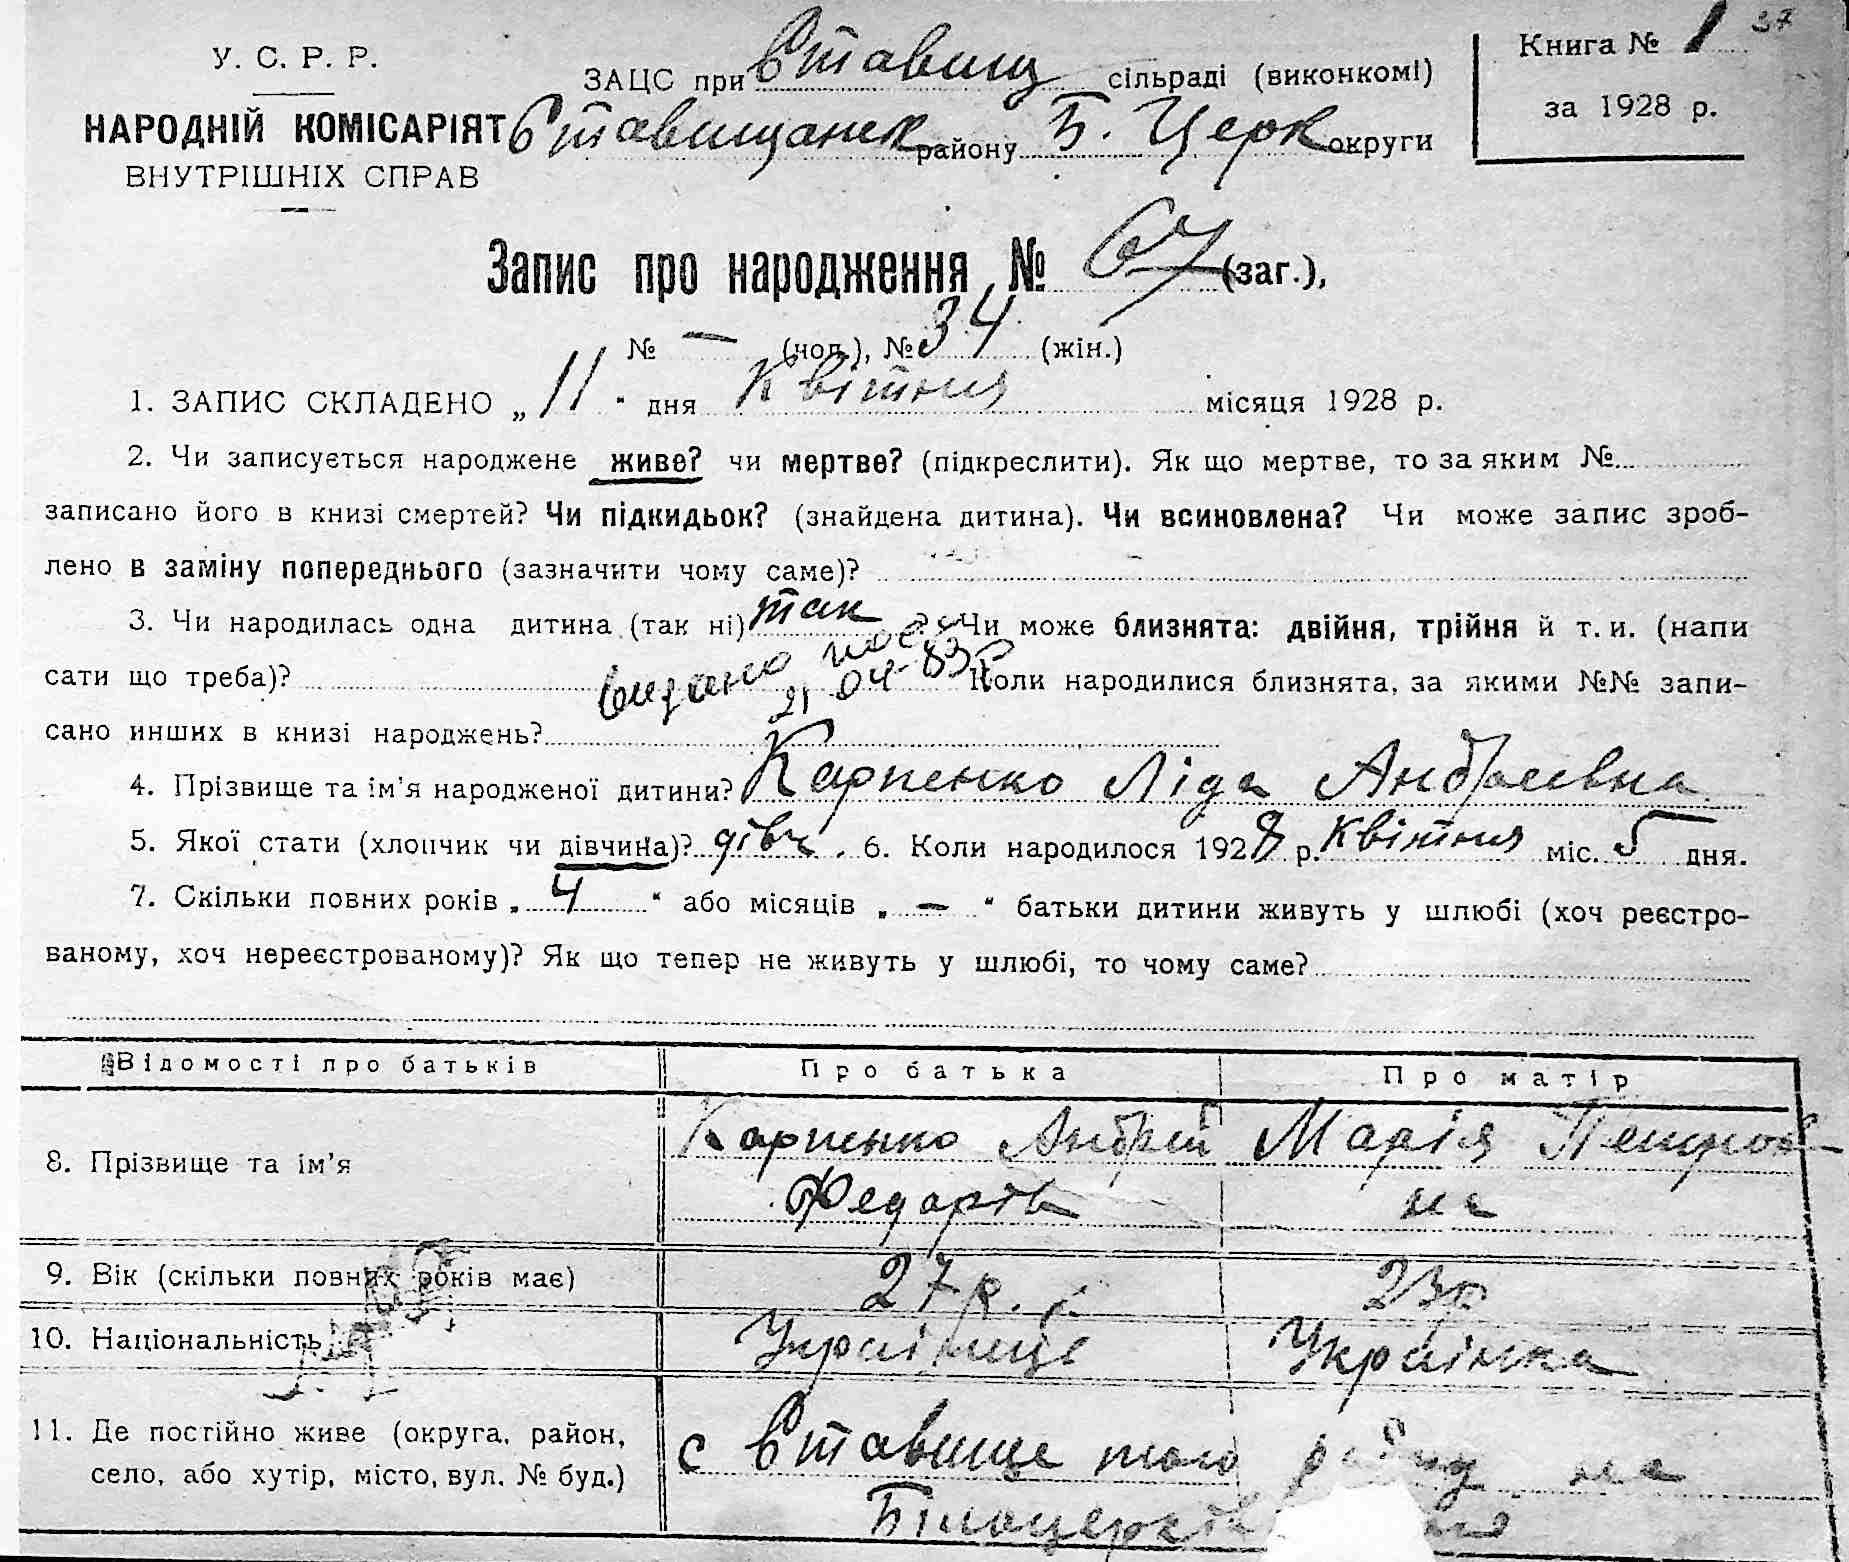 37
У. С. Р. Р.
ЗАЦС при Ставищ сільраді (виконкомі)
Книга № 1
НАРОДНІЙ КОМІСАРІЯТ
Ставищанск району Б. Церк округи
за 1928 р.
ВНУТРІШНІХ СПРАВ
Запис про народження № 67 (заг.),
№ — (чол.), № 34 (жін.)
1. ЗАПИС СКЛАДЕНО „ 11 " дня Квітня місяця 1928 р.
2. Чи записується народжене живе? чи мертве? (підкреслити). Як що мертве, то за яким №
записано його в книзі смертей? Чи підкидьок? (знайдена дитина). Чи всиновлена? Чи може запис зроб-
лено в заміну попереднього (зазначити чому саме)?
3. Чи народилась одна дитина (так ні) так ? Чи може близнята: двійня, трійня й т. и. (напи
сати що треба)? видано 21 04-83 Коли народилися близнята, за якими №№ запи-
сано инших в книзі народжень?
4. Прізвище та ім'я народженої дитини? Карпенко Ліда Андреівна
5. Якої стати (хлопчик чи дівчина)? дівч. 6. Коли народилося 1928 р. Квітня міс. 5 дня.
7. Скільки повних років „ 4 " або місяців „ — " батьки дитини живуть у шлюбі (хоч реєстро-
ваному, хоч нереєстрованому)? Як що тепер не живуть у шлюбі, то чому саме?
Відомості про батьків Про батька Про матір
8. Прізвище та ім'я Карпенко Андрій Марія Петров-
Федорів на
9. Вік (скільки повних років має) 27 р. 23 р
10. Національність Українець Українка
11. Де постійно живе (округа, район,
село, або хутір, місто, вул. № буд.) с Ставище того району на
Білоцерків